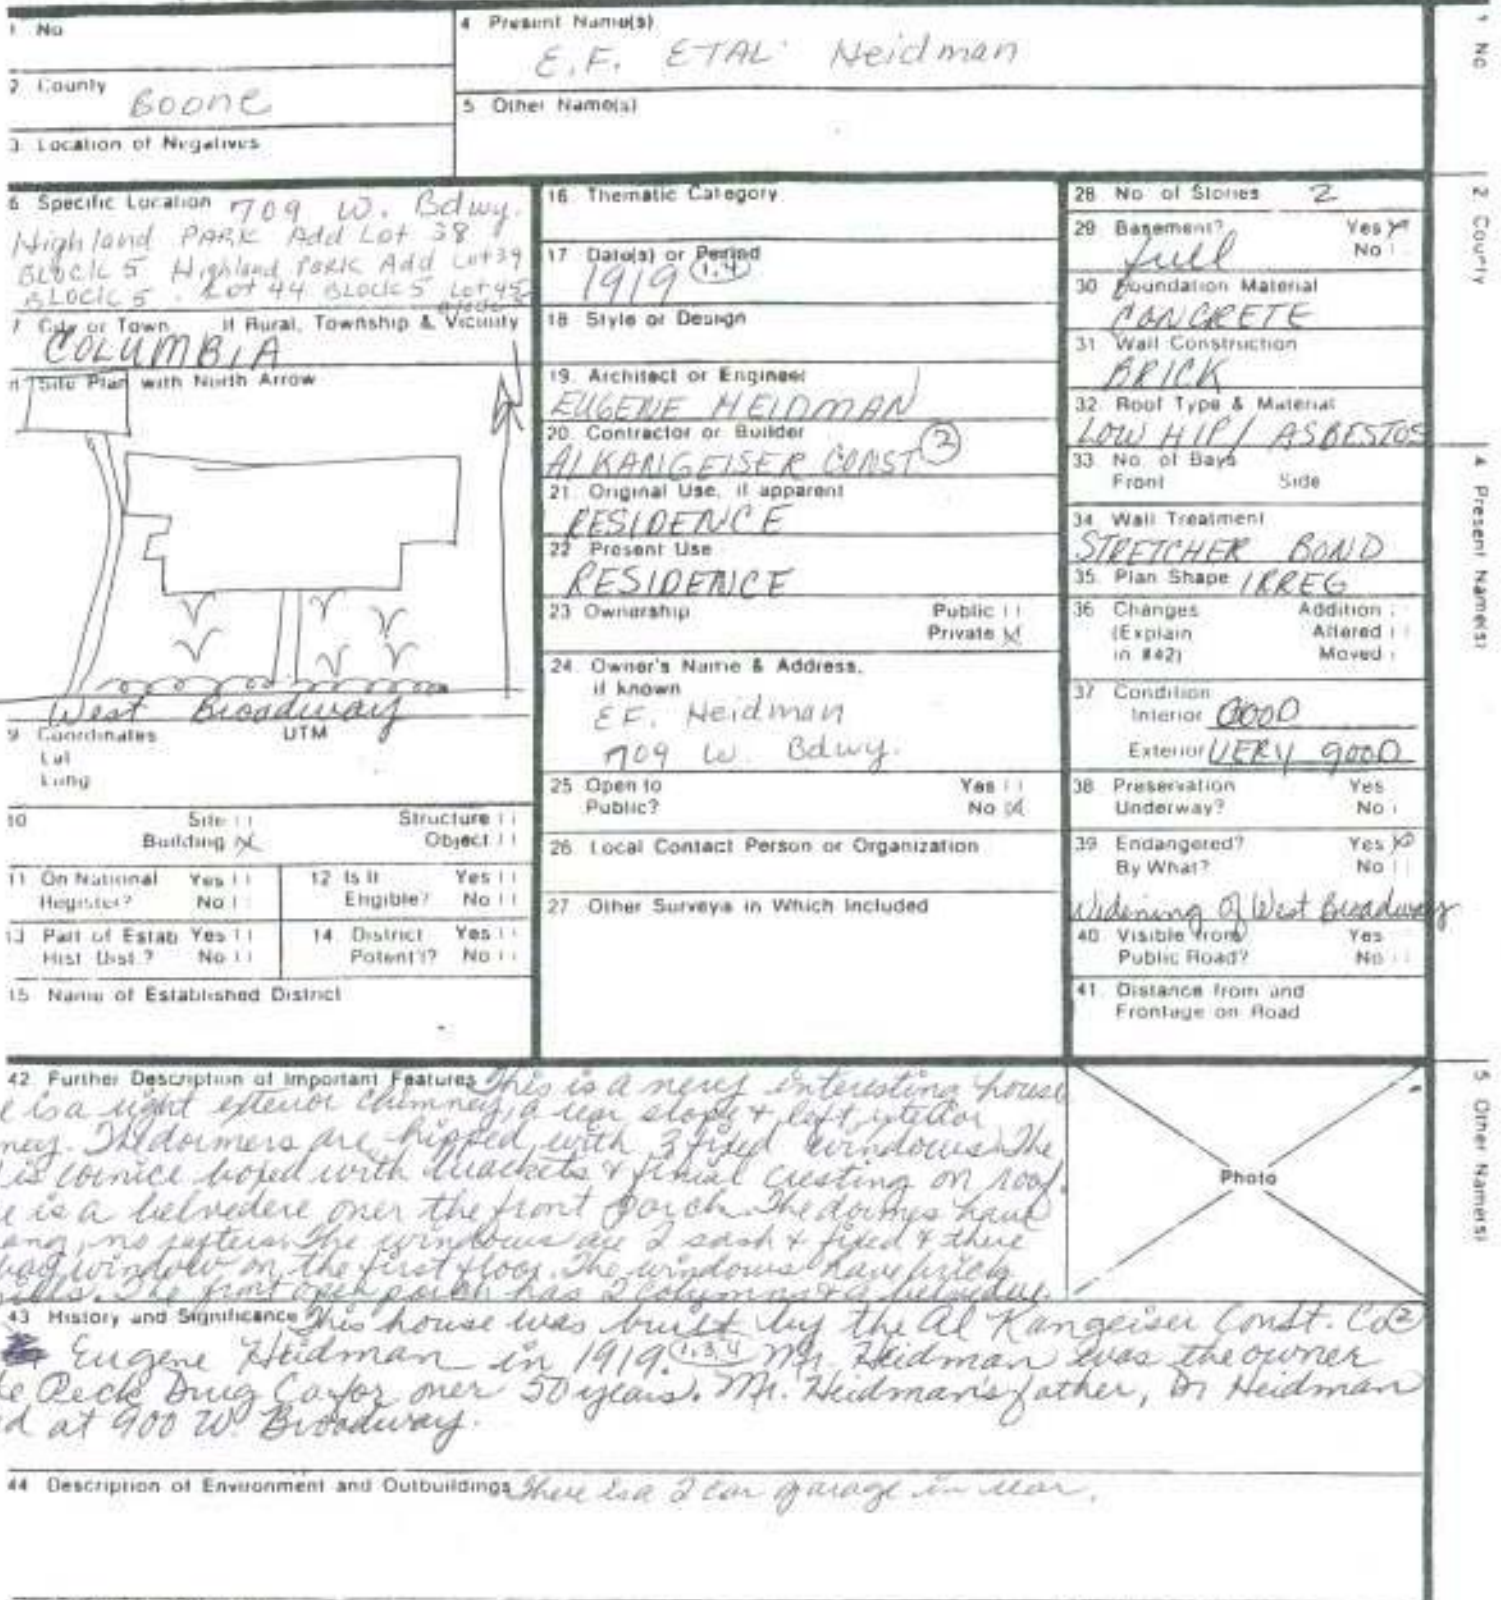 1 No
4 Present Name(s)
E.F. ETAL Neidman
2 County
Boone
5 Other Name(s)
3 Location of Negatives
6 Specific Location 709 W. Bdwy.
Highland PARK Add Lot 38
BLOCK 5 Highland Park Add Lot 39
BLOCK 5. Lot 44 BLOCK 5 Lot 45
7 City or Town If Rural, Township & Vicinity
COLUMBIA
Site Plan with North Arrow
West Broadway
9 Coordinates UTM
Lat
Long
10 Site
Structure
Building
Object
11 On National Register? Yes No
12 Is It Eligible? Yes No
13 Part of Estab Hist Dist? Yes No
14 District Potent'l? Yes No
15 Name of Established District
16 Thematic Category
17 Date(s) or Period
1919 1,4
18 Style or Design
19. Architect or Engineer
EUGENE HEIDMAN
20 Contractor or Builder
Al KANGEISER CONST 2
21 Original Use, if apparent
RESIDENCE
22 Present Use
RESIDENCE
23 Ownership Public
Private
24 Owner's Name & Address,
if known
E.F. Heidman
709 W. Bdwy.
25 Open to Yes
Public? No
26 Local Contact Person or Organization
27 Other Surveys in Which Included
28 No of Stories 2
29 Basement? Yes
full No
30 Foundation Material
CONCRETE
31 Wall Construction
BRICK
32 Roof Type & Material
LOW HIP / ASBESTOS
33 No. of Bays
Front Side
34 Wall Treatment
STRETCHER BOND
35 Plan Shape IRREG
36 Changes Addition
(Explain Altered
in #42) Moved
37 Condition
Interior GOOD
Exterior VERY gOOD
38 Preservation Yes
Underway? No
39 Endangered? Yes
By What? No
Widening of West Broadway
40 Visible from Yes
Public Road? No
41 Distance from and
Frontage on Road
42 Further Description of Important Features This is a very interesting house
e is a right exterior chimney, a rear slope & left interior
ney. The dormers are hipped with 3 fixed windows. The
is cornice boxed with brackets & finial cresting on roof.
e is a belvedere over the front porch. The dormes have
ang, no rafters. The windows are 2 sash & fixed & there
bay window on the first floor. The windows have brick
sills. The front open porch has 2 columns & a belvedere.
Photo
43 History and Significance This house was built by the Al Kangeiser Const. Co 2
Eugene Heidman in 1919. 1,3,4 Mr. Heidman was the owner
e Peck Drug Co. for over 50 years. Mr. Heidman's father, Dr Heidman
d at 900 W. Broadway.
44 Description of Environment and Outbuildings There is a 2 car garage in rear.
1 No
2 County
4 Present Name(s)
5 Other Name(s)